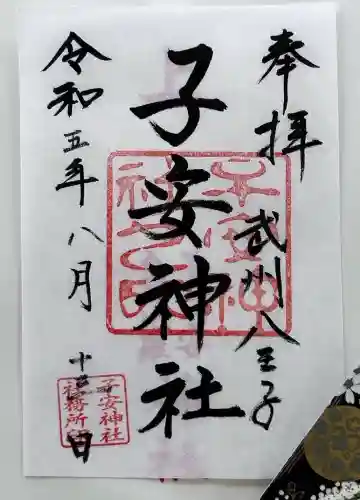 奉拝
武州八王子
子安神社
令和五年八月十三日
子安神社
社務所印